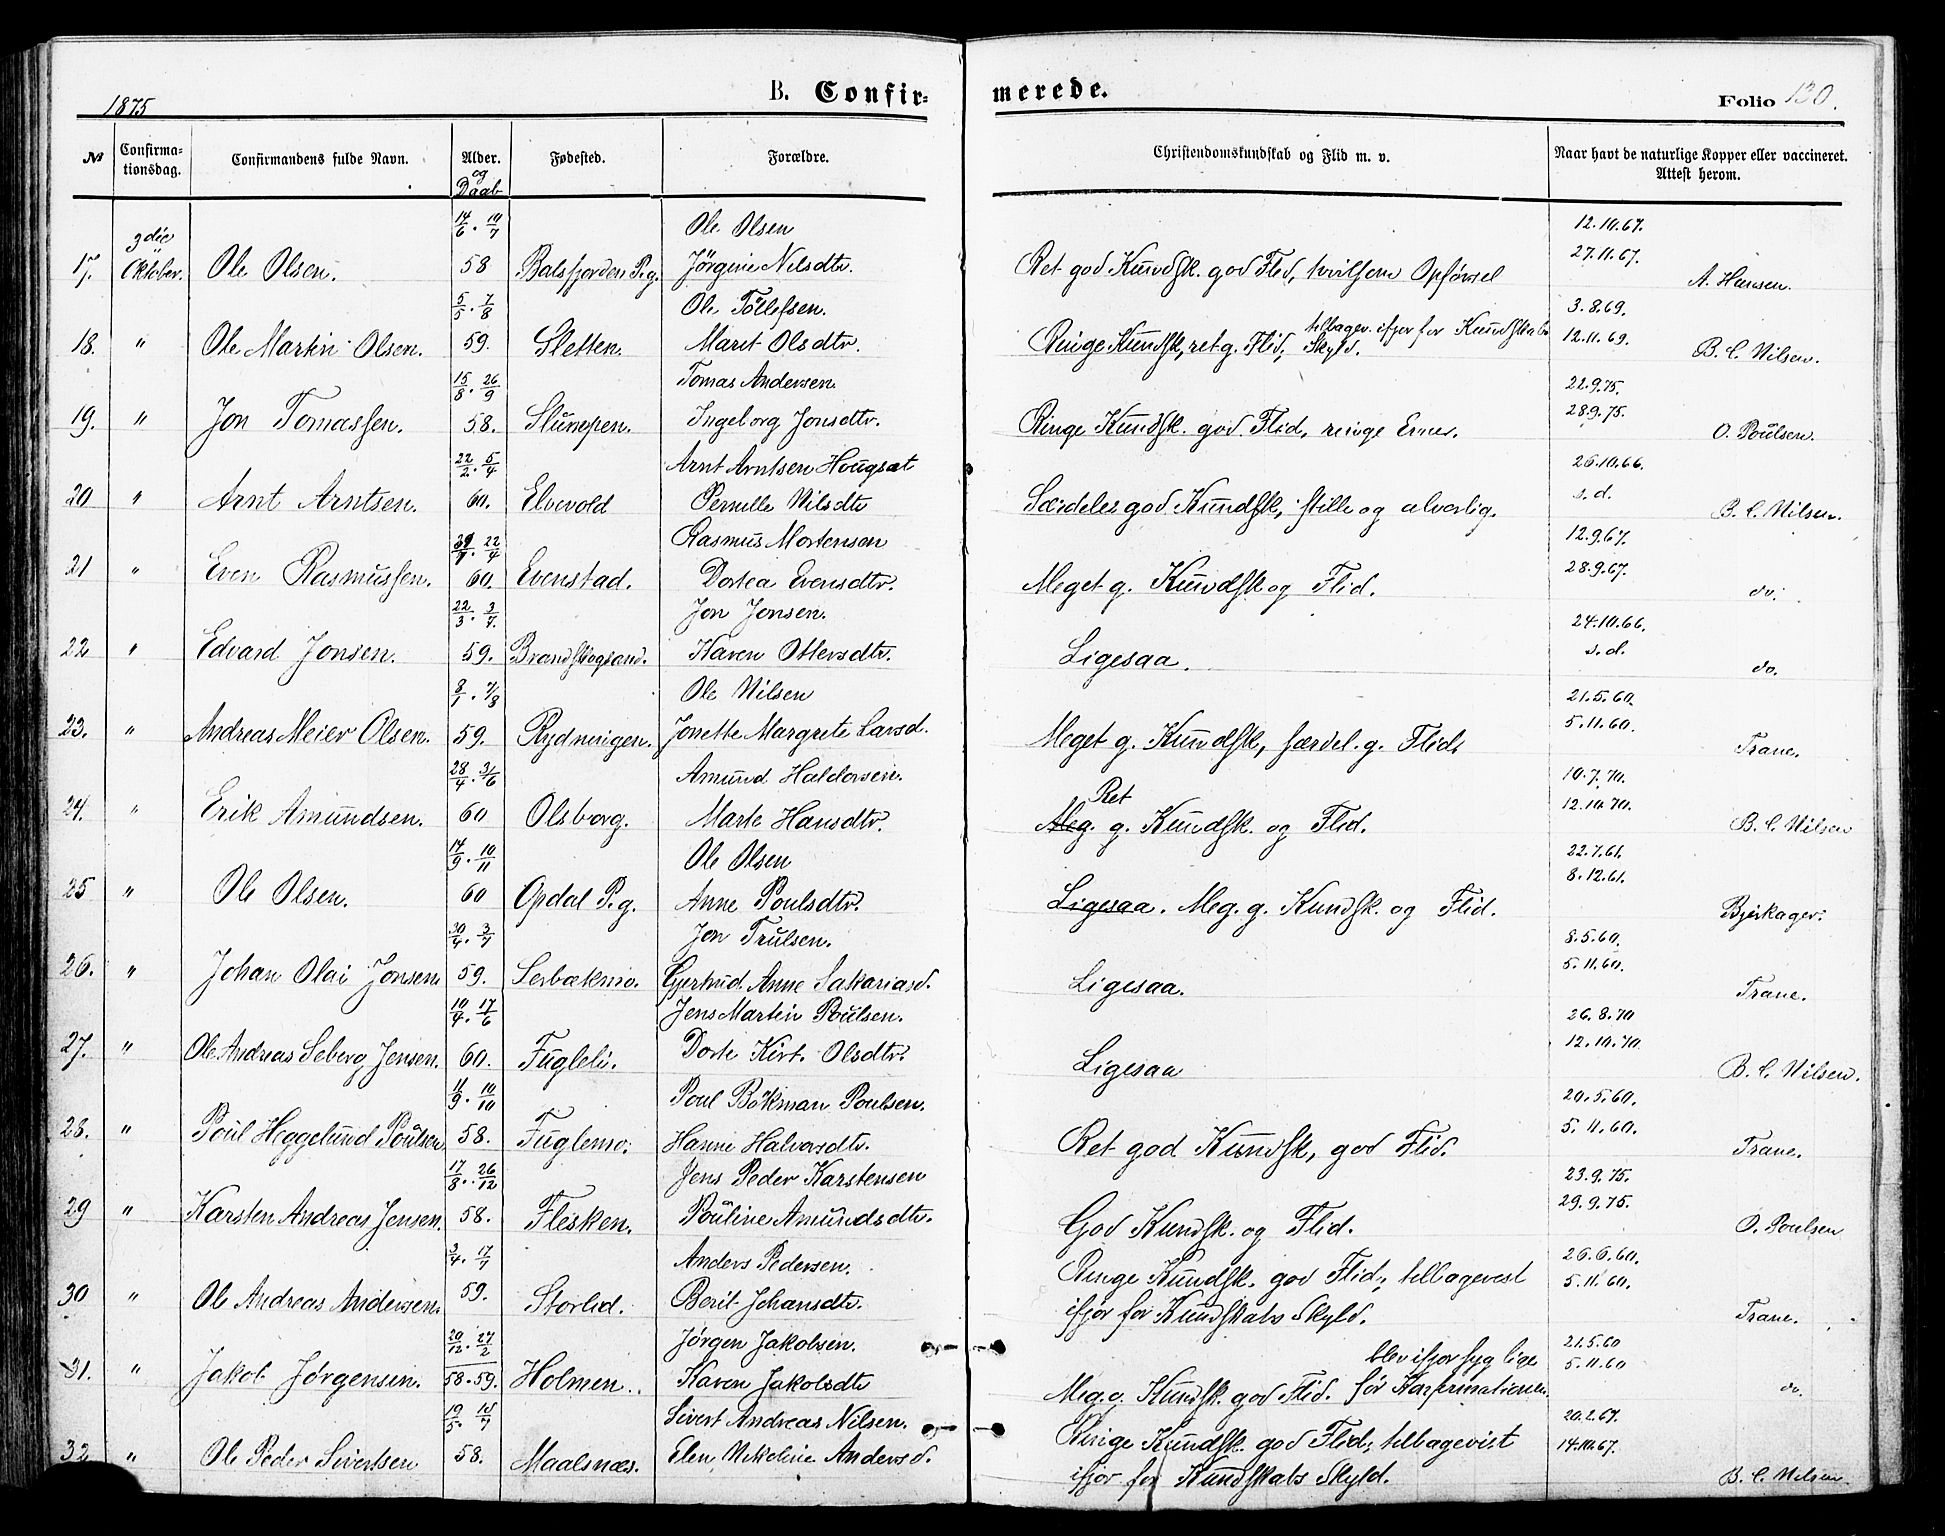 1875 B. Confirmerede. Folio 130.
№ Confirmationsdag. Confirmandens fulde Navn. Alder. og Daab Fødested. Forældre. Christendomskundskab og Flid m. v. Naar havt de naturlige Kopper eller vaccineret. Attest herom.
14/6. 10/7 Ole Olsen 12.10.67.
17. 3die Oktober. Ole Olsen. 58 Balsfjorden P.g. Jörgine Nilsdtr. Ret god Kundsk. god Flid, tvilsom Opförsel 27.11.67. A. Hansen.
5/5. 7/8 Ole Töllefsen. 3.8.69.
18. " Ole Martin Olsen. 59. Sletten. Marit Olsdtr. Ringe Kundsk, ret g. Flid, tilbagev. ifjor for Kundskabs Skyld. 12.11.69. B. C. Nilsen.
15/8. 26/9 Tomas Andersen 22.9.75.
19. " Jon Tomassen. 58. Slunepen. Ingeborg Jonsdtr. Ringe Kundsk. god Flid, ringe Evner. 28.9.75. O. Poulsen.
22/2. 5/4 Arnt Arntsen Hougsæt 26.10.66.
20 " Arnt Arntsen. 60. Elvevold Pernille Nilsdtr Særdeles god Kundsk, stille og alvorlig. s.d. B. C. Nilsen.
22/4 Rasmus Mortensen 12.9.67.
21 " Even Rasmussen. 60. Evenstad. Dortea Evensdtr. Meget g. Kundsk og Flid. 28.9.67. do.
22/3. 3/7. Jon Jonsen. 24.10.66.
22 " Edvard Jonsen. 59. Brandskogsand. Karen Ottersdtr. Ligesaa. s.d. do.
8/1. 7/8 Ole Nilsen 21.5.60.
23. " Andreas Meier Olsen. 59. Rydningen. Jonette Margrete Larsd. Meget g. Kundsk, særdel. g. Flid. 5.11.60. Trane.
28/4. 3/6 Amund Haldorsen. 10.7.70.
24. " Erik Amundsen. 60 Olsborg. Marte Hansdtr. Meg. Ret g. Kundsk. og Flid. 12.10.70. B. C. Nilsen
17/9. 10/11 Ole Olsen 22.7.61.
25 " Ole Olsen. 60 Opdal P.g. Anne Poulsdtr. Ligesaa. Meg. g. Kundsk. og Flid. 8.12.61. Bjerkager.
30/4. 3/7 Jon Trulsen. 8.5.60.
26. " Johan Olai Jonsen 59. Serbækmo. Gjertrud Anne Sakariasd. Ligesaa. 5.11.60. Trane.
10/4. 17/6 Jens Martin Poulsen. 26.8.70
27. " Ole Andreas Seberg Jensen. 60. Fugleli. Dorte Kirt. Olsdtr. Ligesaa 12.10.70. B. C. Nilsen.
11/9. 10/10 Poul Bökman Poulsen. 20.5.60.
28. " Poul Heggelund Poulsen 58. Fuglemo. Hanne Halvorsdtr. Ret god Kundsk, god Flid. 5.11.60. Trane.
17/8. 26/12 Jens Peder Karstensen 23.9.75.
29 " Karsten Andreas Jensen. 58. Flesken. Pouline Amundsdtr. God Kundsk. og Flid. 29.9.75. O. Poulsen
3/4. 17/7 Anders Pedersen. Ringe Kundsk. god Flid, tilbagevist 26.6.60.
30 " Ole Andreas Andersen. 59. Storlid. Berit Johansdtr. ifjor for Kundskabs Skyld. 5.11.60. Trane.
20/12. 27/2 Jørgen Jakobsen. blev ifjor syg lige 21.5.60
31. " Jakob Jørgensen. 58.59. Holmen. Karen Jakobsdtr Meg. g. Kundsk. god Flid. før Konfirmationen. 5.11.60 do.
19/5. 18/7 Sivert Andreas Nilsen. Ringe Kundsk. god Flid, tilbagevist 20.2.67.
32 " Ole Peder Sivertsen 58. Maalsnæs. Elen Nikoline Andersd. ifjor for Kundskabs Skyld. 14.10.67. B. C. Nilsen